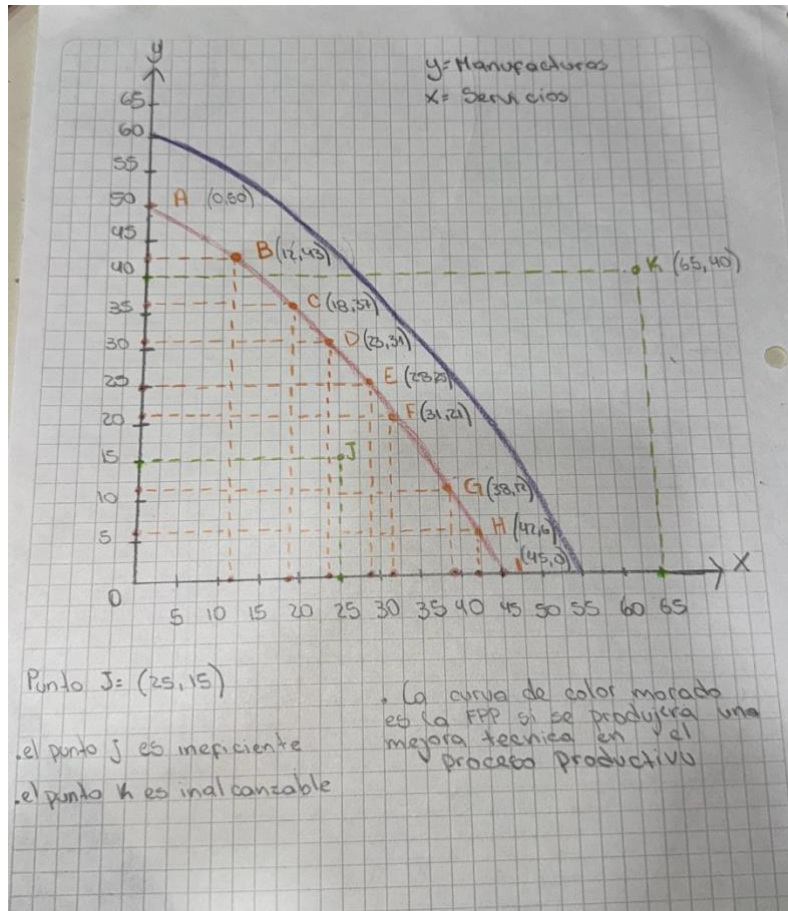 y
y=Manufacturas
X= Servicios
65
60
55
50 A (0,50)
45
B (12,43)
40
K (65,40)
35 C (18,37)
30 D (23,31)
25 E (28,25)
20 F (31,21)
15 J
10 G (38,12)
5 H (42,6)
I (45,0)
X
0 5 10 15 20 25 30 35 40 45 50 55 60 65
Punto J= (25,15)
.el punto J es ineficiente
.el punto K es inalcanzable
. La curva de color morado
es la FPP si se produjera una
mejora tecnica en el
proceso productivo